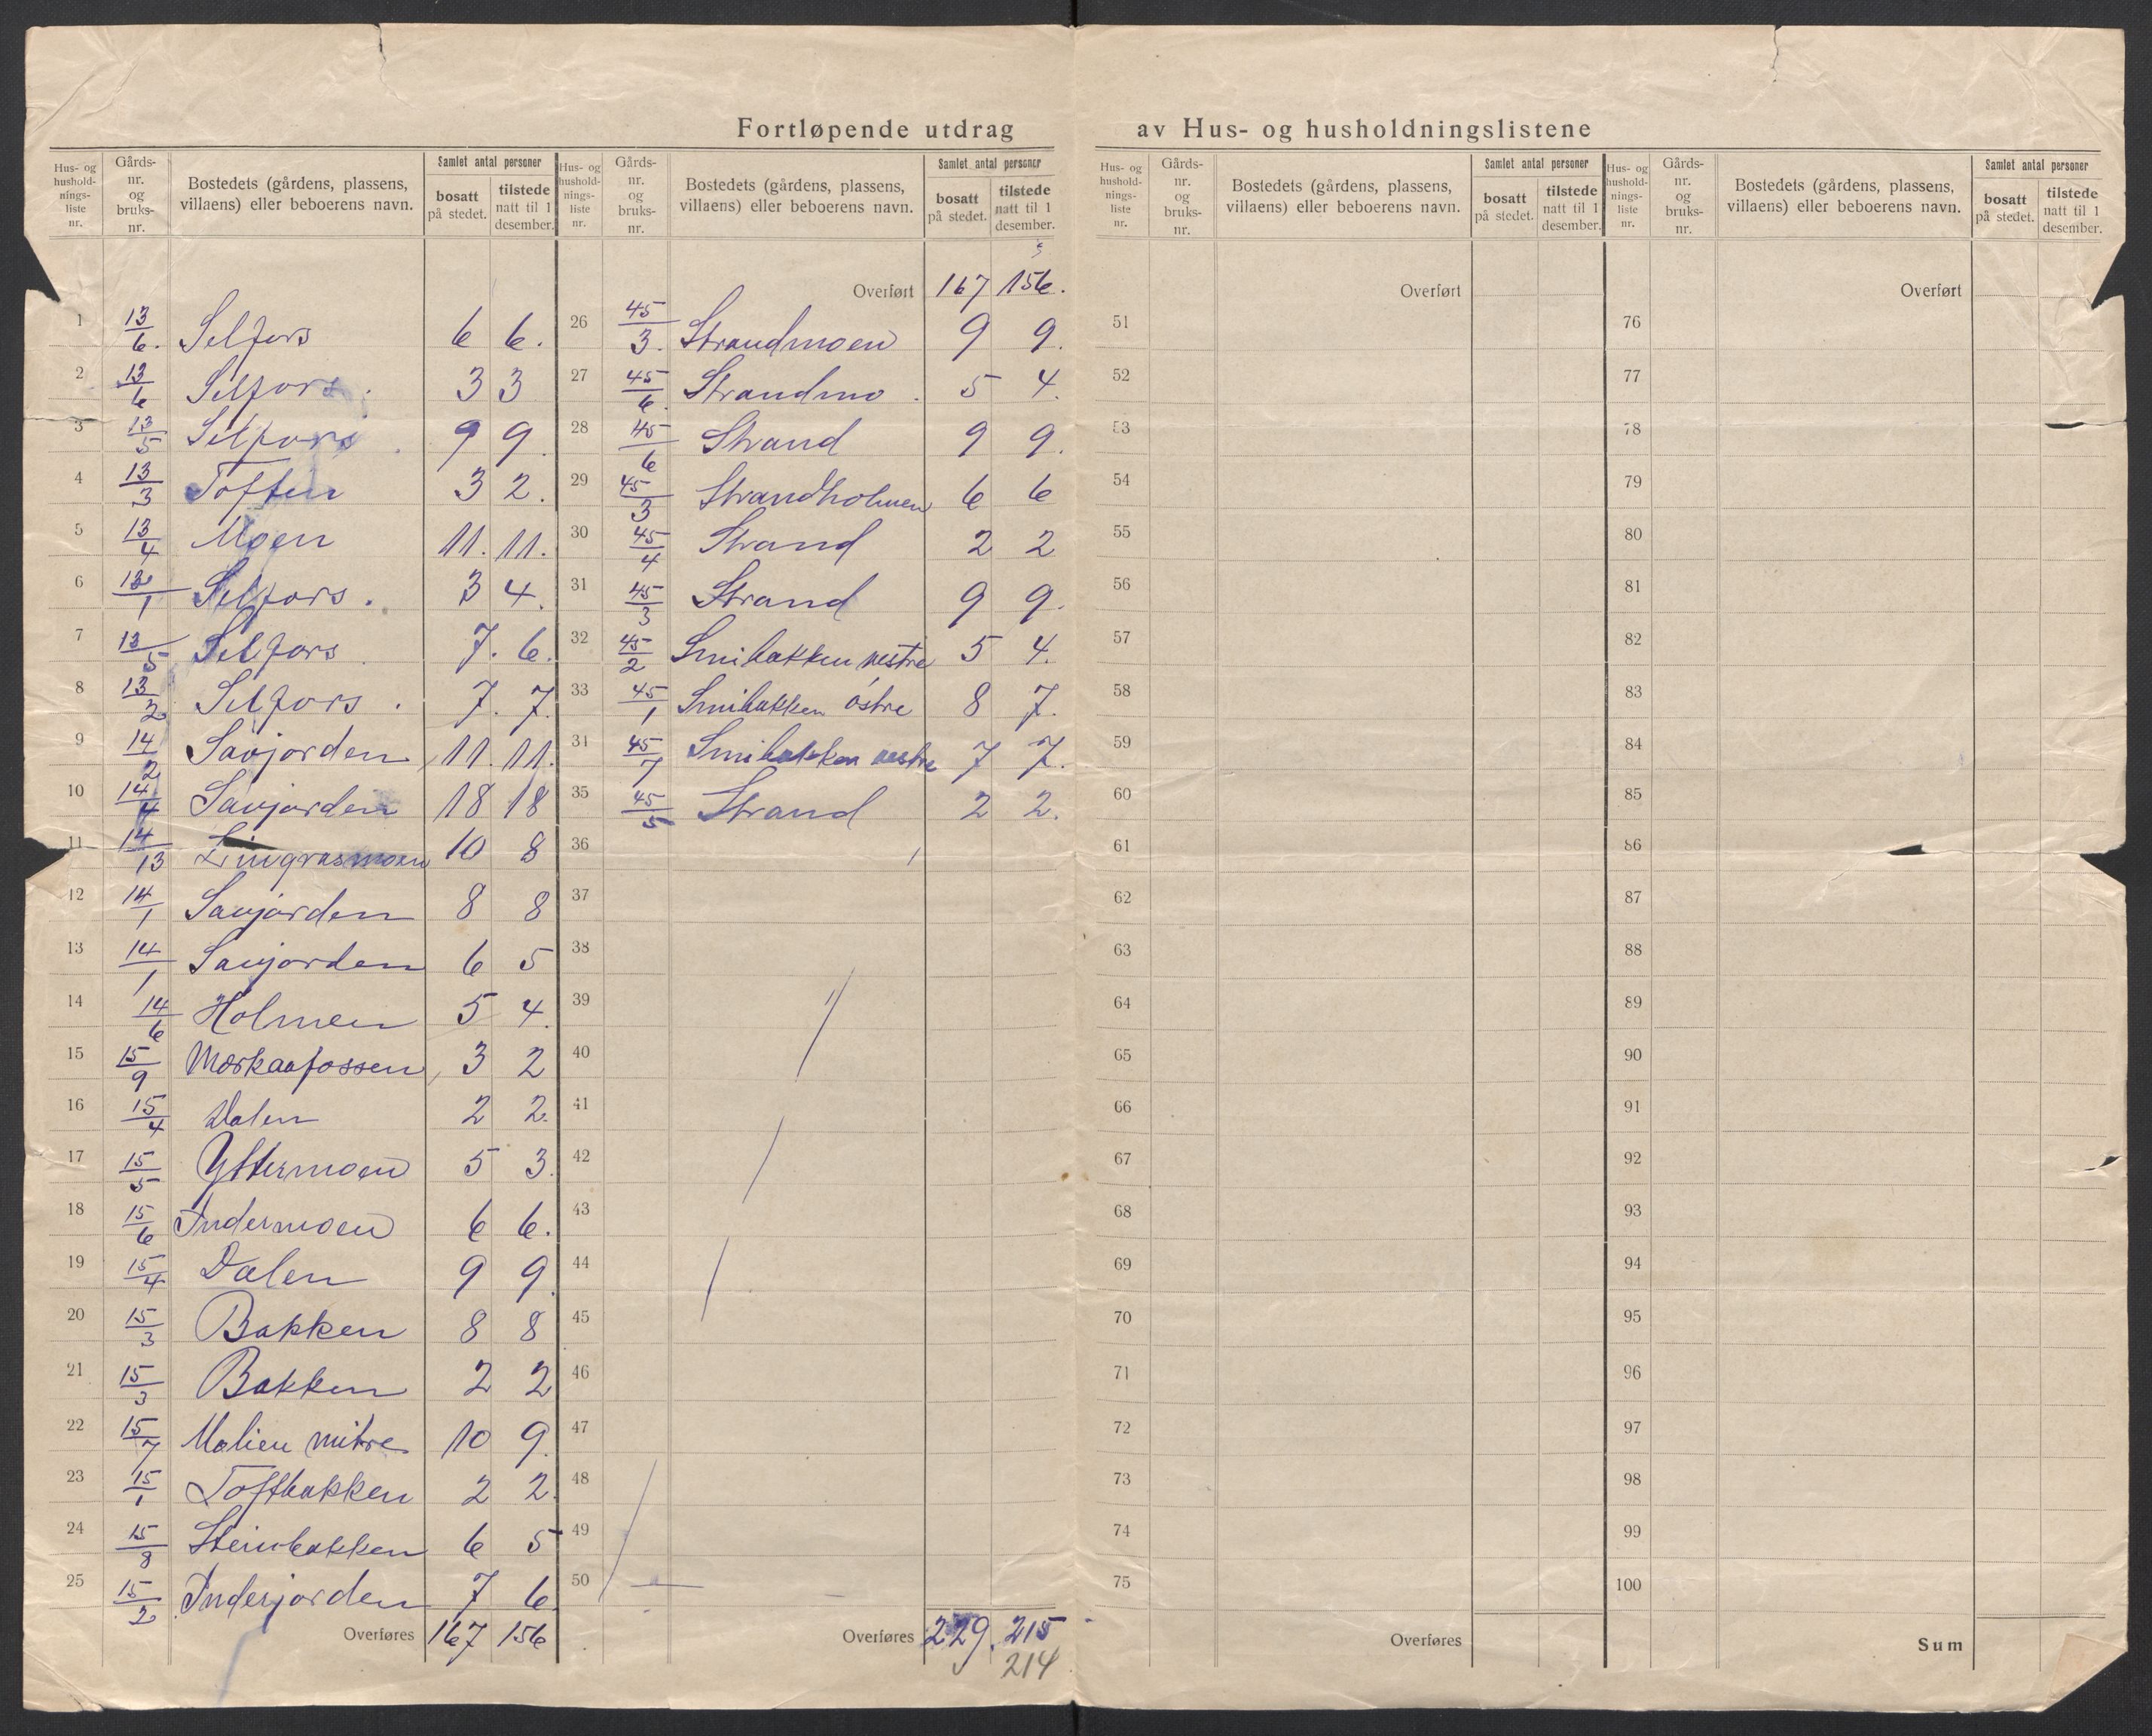 Fortløpende utdrag av Hus- og husholdningslistene
Hus- og hushold-nings-liste nr. Gårds-nr. og bruks-nr. Bostedets (gårdens, plassens, villaens) eller beboerens navn. Samlet antal personer bosatt på stedet. tilstede natt til 1 desember.
1 13/6. Selfors 6 6.
2 13/6 Selfors. 3 3
3 13/5 Selfors. 9 9.
4 13/3 Toften 3 2.
5 13/4 Moen 11. 11.
6 13/1 Selfors. 3 4.
7 13/5 Selfors. 7. 6.
8 13/2 Selfors. 7. 7.
9 14/2 Savjorden 11. 11.
10 14/4 Savjorden 18 18
11 14/13 Lingrasmoen 10 8
12 14/1 Savjorden 8 8
13 14/1 Savjorden 6 5
14 14/6 Holmen 5 4.
15 15/9 Mørkaafossen 3 2
16 15/4 Dalen 2 2.
17 15/5 Yttermoen 5 3.
18 15/6 Indermoen 6 6.
19 15/4 Dalen 9 9.
20 15/3 Bakken 8 8
21 15/3 Bakken 2 2
22 15/7 Molien mitre 10 9.
23 15/1 Toftbakken 2 2.
24 15/8 Steinbakken 6 5
25 15/2 Inderjorden 7 6
Overføres 167 156
Hus- og hushold-nings-liste nr. Gårds-nr. og bruks-nr. Bostedets (gårdens, plassens, villaens) eller beboerens navn. Samlet antal personer bosatt på stedet. tilstede natt til 1 desember.
Overført 167 156.
26 45/3. Strandmoen 9 9.
27 45/6. Strandmo. 5 4.
28 45/6 Strand 9 9.
29 45/3 Strandholmen 6 6
30 45/4 Strand 2 2
31 45/3 Strand 9 9.
32 45/2 Smibakken vestre 5 4.
33 45/1 Smibakken østre 8 7.
34 45/7 Smibakken vestre 7 7.
35 45/5 Strand 2 2.
36
37
38
39
40
41
42
43
44
45
46
47
48
49
50
Overføres 229. 215
214
Hus- og hushold-nings-liste nr. Gårds-nr. og bruks-nr. Bostedets (gårdens, plassens, villaens) eller beboerens navn. Samlet antal personer bosatt på stedet. tilstede natt til 1 desember.
Overført
51
52
53
54
55
56
57
58
59
60
61
62
63
64
65
66
67
68
69
70
71
72
73
74
75
Overføres
Hus- og hushold-nings-liste nr. Gårds-nr. og bruks-nr. Bostedets (gårdens, plassens, villaens) eller beboerens navn. Samlet antal personer bosatt på stedet. tilstede natt til 1 desember.
Overført
76
77
78
79
80
81
82
83
84
85
86
87
88
89
90
91
92
93
94
95
96
97
98
99
100
Sum